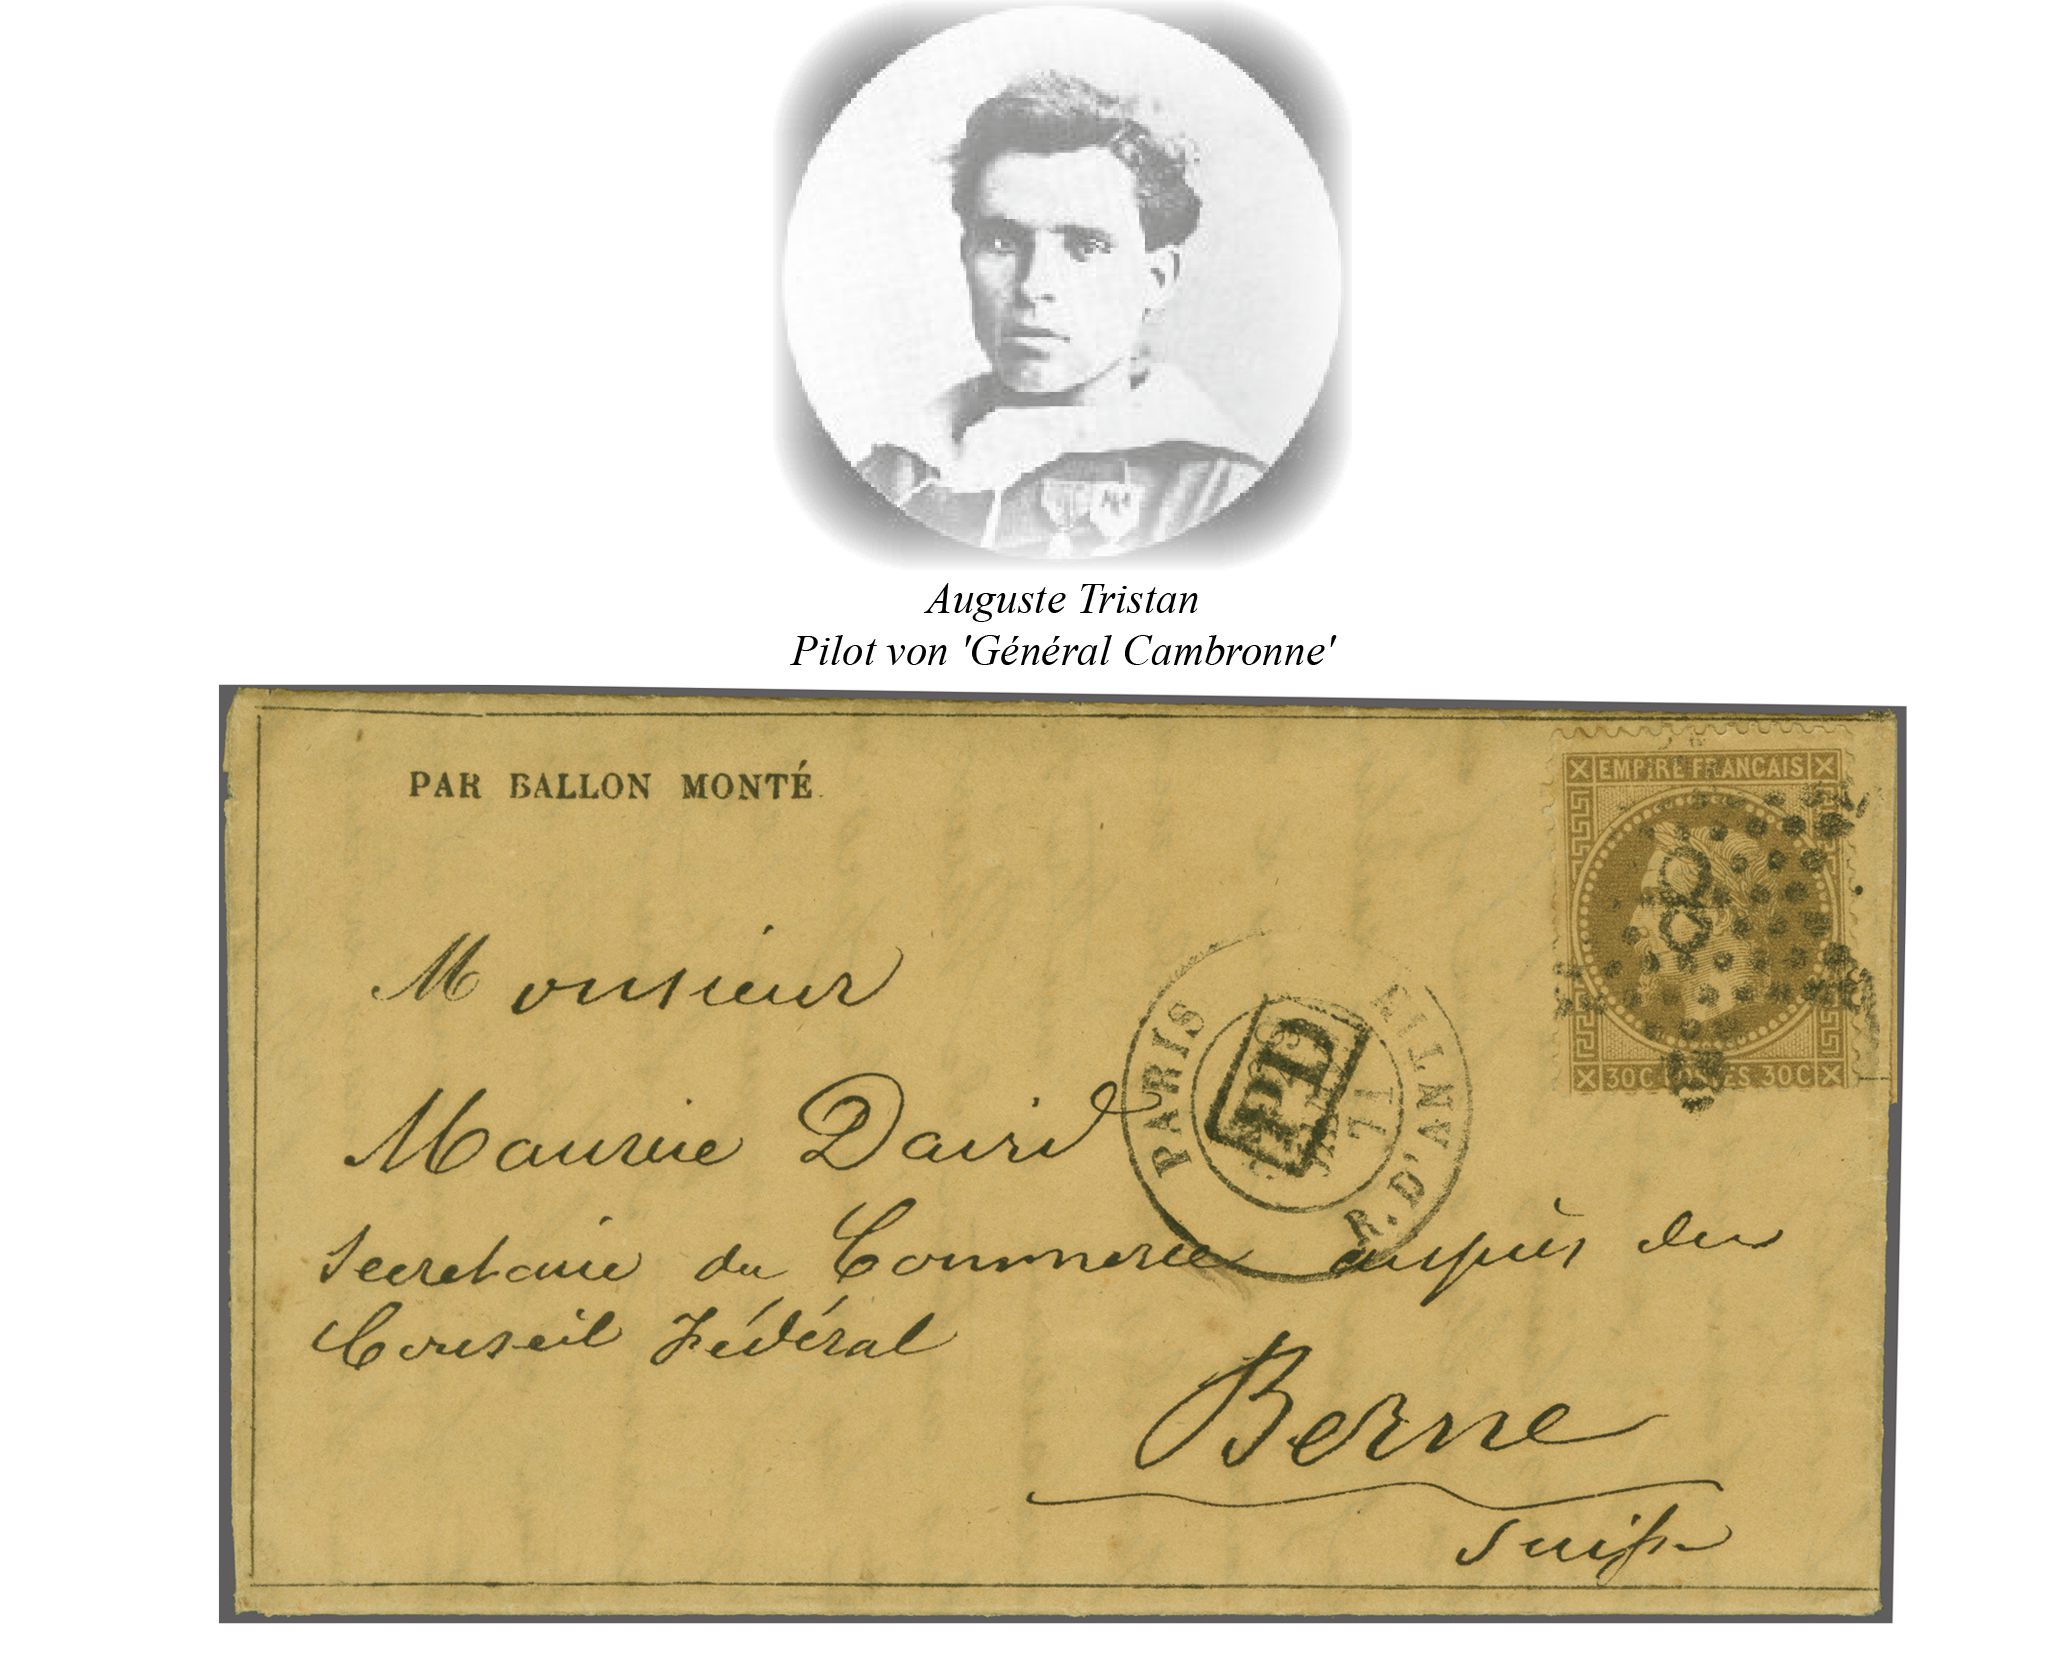 Auguste Tristan
Pilot von 'Général Cambronne'
PAR BALLON MONTÉ
EMPIRE FRANCAIS
8
30C POSTES 30C
PARIS R. D'ANTIN
71
PD
Monsieur
Maurice David
Secretaire du Commerce auprès du
Conseil Fédéral
Berne
Suisse